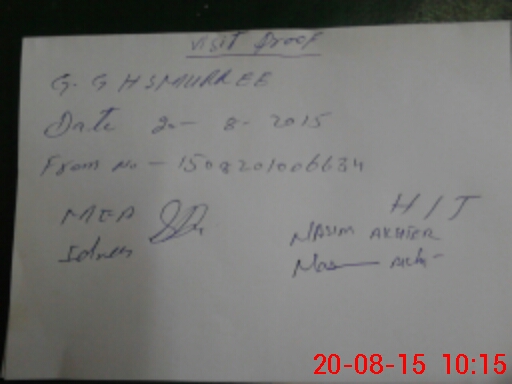 Visit Proof
G. G HS MURREE
Date 20- 8- 2015
From No - 1508201006634
MEA
H/T
NASIM AKHTER
20-08-15 10:15